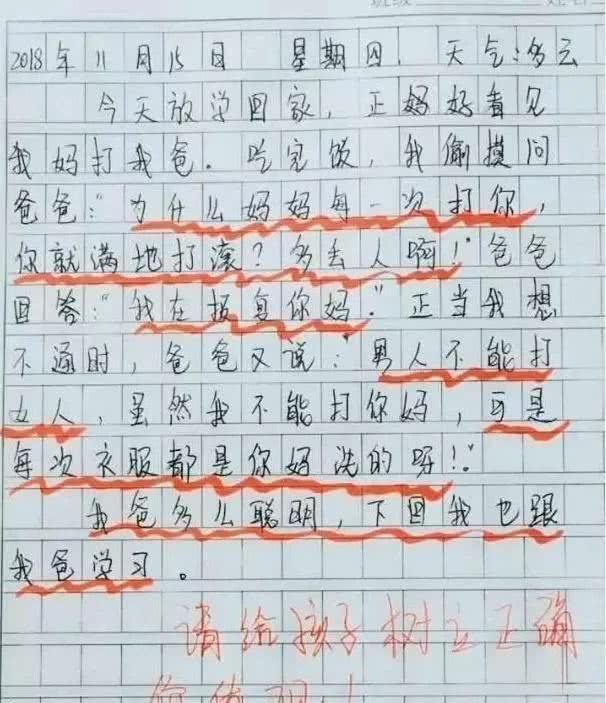 2018年11月15日 星期四. 天气:多云
今天放学回家,正妈好看见
我妈打我爸.吃完饭,我偷摸问
爸爸:"为什么妈妈每一次打你,
你就满地打滚?多丢人啊!"爸爸
回答:"我在报复你妈."正当我想
不通时,爸爸又说:"男人不能打
女人,虽然我不能打你妈,可是
每次衣服都是你妈洗的呀!"
我爸多么聪明,下回我也跟
我爸学习。
请给孩子树立正确